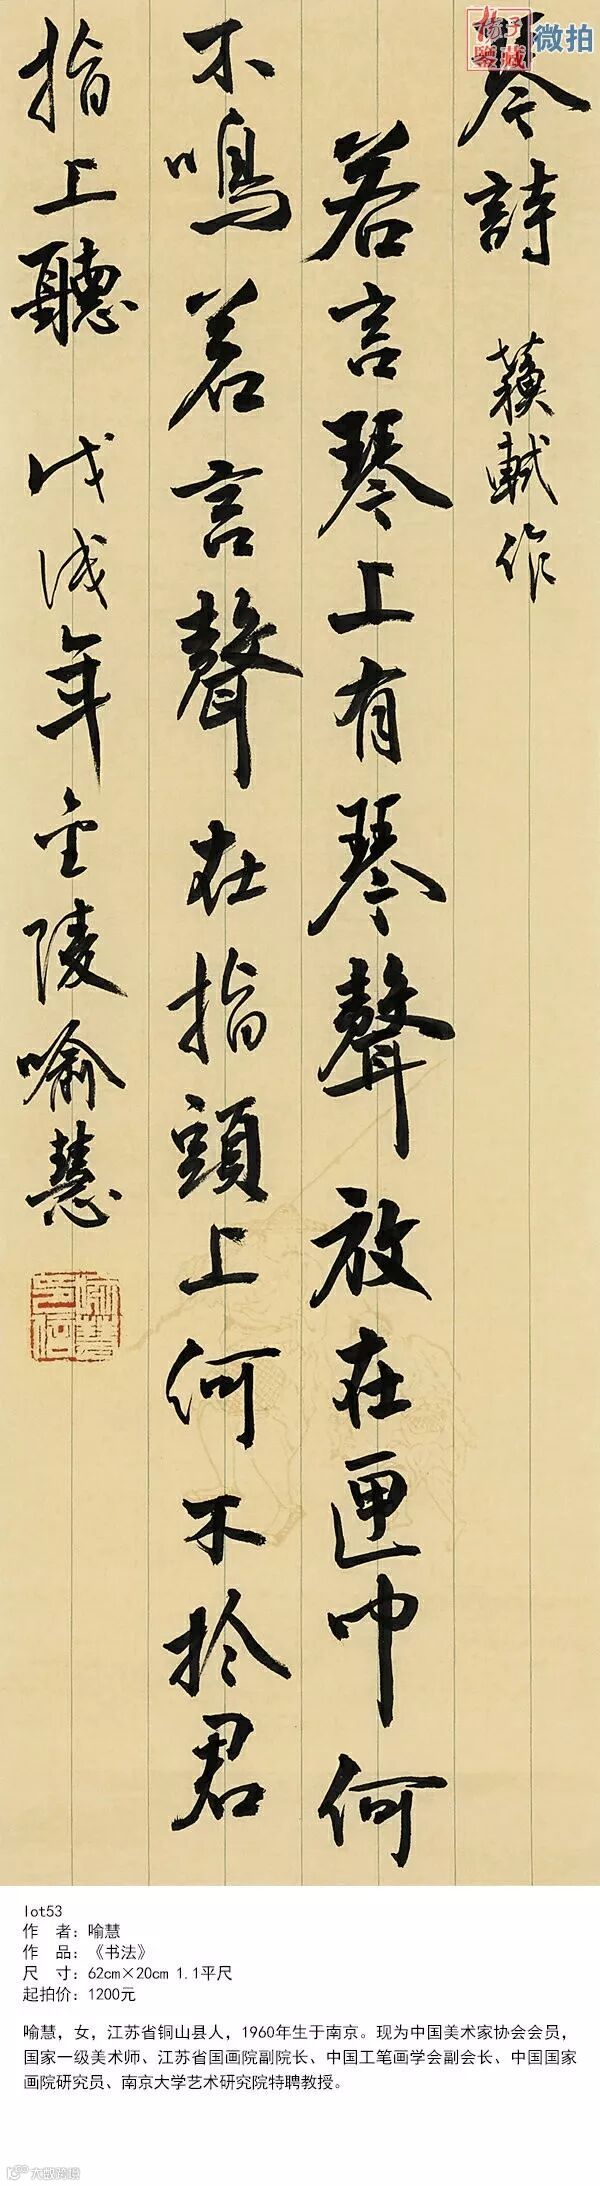 扬子
鉴藏
微拍
琴詩 蘇軾作
若言琴上有琴聲放在匣中何
不鳴若言聲在指頭上何不於君
指上聽 戊戌年金陵喻慧
喻慧
印信
lot53
作 者：喻慧
作 品：《书法》
尺 寸：62cm×20cm 1.1平尺
起拍价：1200元
喻慧，女，江苏省铜山县人，1960年生于南京。现为中国美术家协会会员，
国家一级美术师、江苏省国画院副院长、中国工笔画学会副会长、中国国家
画院研究员、南京大学艺术研究院特聘教授。
大数跨境